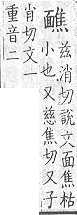 䩌
茲消切說文面焦枯
小也又慈焦切又子
肖切文一
重音二